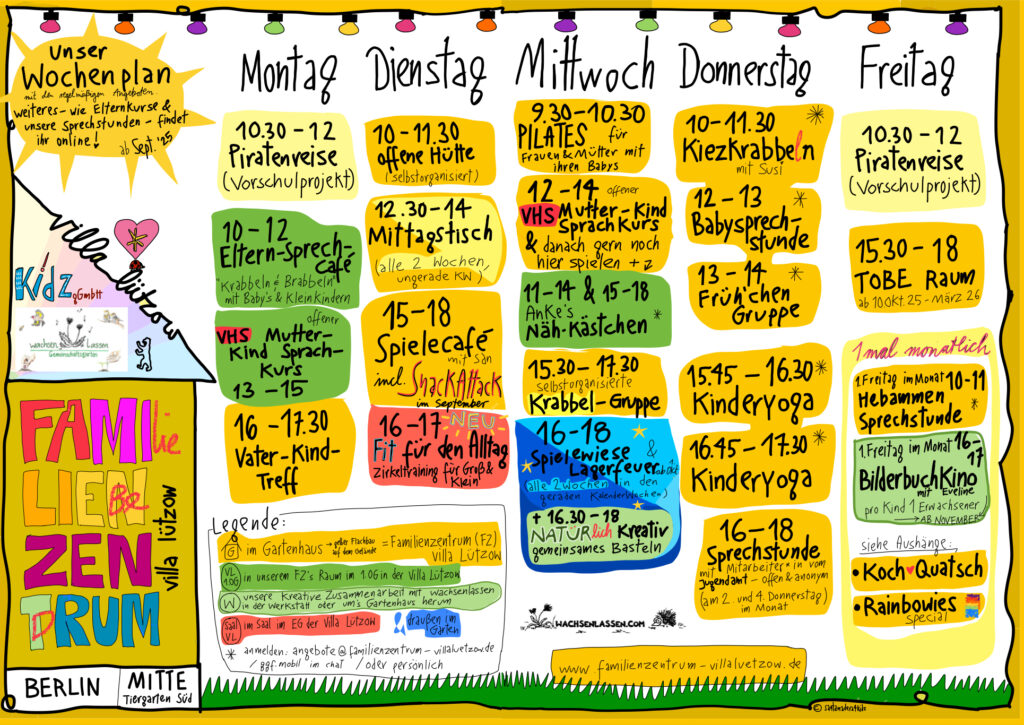 Unser
Wochenplan
mit den regelmäßigen Angeboten.
weiteres - wie Elternkurse &
unsere Sprechstunden - findet
ihr online!
ab Sept. '25
villa lützow
Kidz
gGmbH
wachsen lassen
Gemeinschaftsgarten
FAMIlie
LIEN Be
ZEN
TRUM
D
villa lützow
BERLIN
MITTE
Tiergarten Süd
Montag
10.30 - 12
Piratenreise
(Vorschulprojekt)
10 - 12
Eltern-Sprech-
Café
"Krabbeln & Brabbeln"
mit Baby's & Kleinkindern
offener
VHS Mutter-
Kind Sprach-
Kurs
13 - 15
16 - 17.30
Vater-Kind-
Treff
Dienstag
10 - 11.30
offene Hütte
(selbstorganisiert)
12.30 - 14
Mittagstisch
(alle 2 Wochen,
ungerade KW)
15 - 18
Spielecafé
mit San
incl. SnackAttack
im September
16 - 17 NEU
Fit für den Alltag
Zirkeltraining für Groß &
Klein
Mittwoch
9.30 - 10.30
PILATES für
Frauen & Mütter mit
ihren Babys
12 - 14 offener
VHS Mutter-Kind
Sprachkurs
& danach gern noch
hier spielen + z
11 - 14 & 15 - 18
AnKe's
Näh-Kästchen *
15.30 - 17.30
selbstorganisierte
Krabbel-Gruppe
16 - 18
Spielewiese &
Lagerfeuer ab Okt
(alle 2 Wochen in den
geraden Kalenderwochen)
+ 16.30 - 18
NATÜRlich Kreativ
gemeinsames Basteln
Donnerstag
10 - 11.30 *
KiezKrabbeln
mit Susi
12 - 13 *
Babysprech-
stunde
13 - 14 *
Früh'chen
Gruppe
15.45 - 16.30 *
Kinderyoga
16.45 - 17.30 *
Kinderyoga
16 - 18
Sprechstunde
mit Mitarbeiter*in vom
Jugendamt - offen & anonym
(am 2. und 4. Donnerstag)
im Monat
Freitag
10.30 - 12
Piratenreise
(Vorschulprojekt)
15.30 - 18
TOBE RAUM
ab 10 Okt. 25 - März 26
1 mal monatlich
1. Freitag im Monat 10-11
Hebammen
Sprechstunde *
1. Freitag im Monat 16-
17
BilderbuchKino
mit Eveline
pro Kind 1 Erwachsener
→ AB NOVEMBER
siehe Aushänge:
• Koch♥Quatsch
• Rainbowies
special
Legende:
G im Gartenhaus → gelber Flachbau auf dem Gelände = Familienzentrum (FZ)
Villa Lützow
VL 1.OG in unseren FZ's Raum im 1.OG in der Villa Lützow
W unsere Kreative Zusammenarbeit mit wachsenlassen
in der Werkstatt oder um's Gartenhaus herum
Saal VL im Saal im EG der Villa Lützow
draußen im
Garten
* anmelden: angebote@familienzentrum-villaluetzow.de
/ ggf. mobil im chat / oder persönlich
WACHSENLASSEN.COM
www.familienzentrum-villaluetzow.de